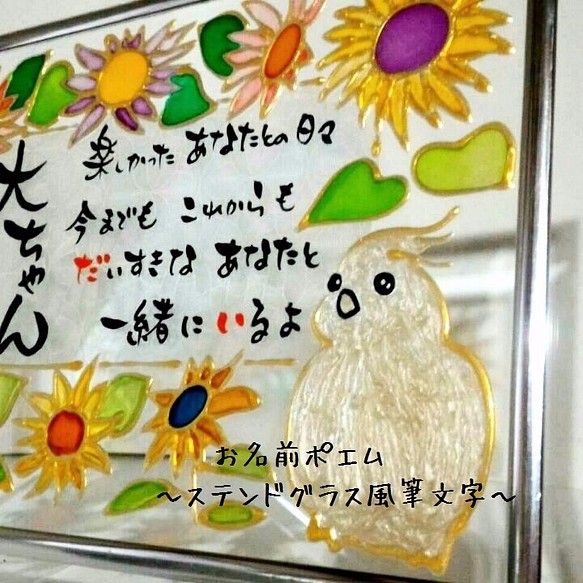 大ちゃん
楽しかった あなたとの日々
今までも これからも
だいすきな あなたと
一緒に いるよ
お名前ポエム
～ステンドグラス風筆文字～